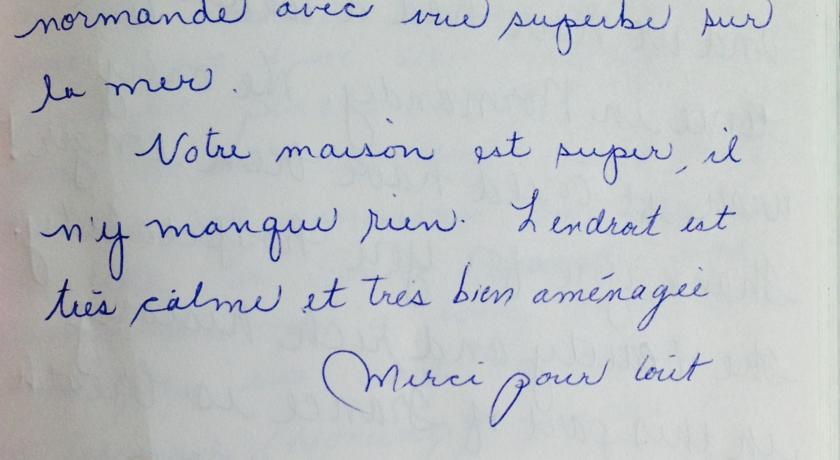 normande avec vue superbe sur
la mer.
Votre maison est super, il
n'y manque rien. L endroit est
très calme et très bien aménagée
Merci pour tout